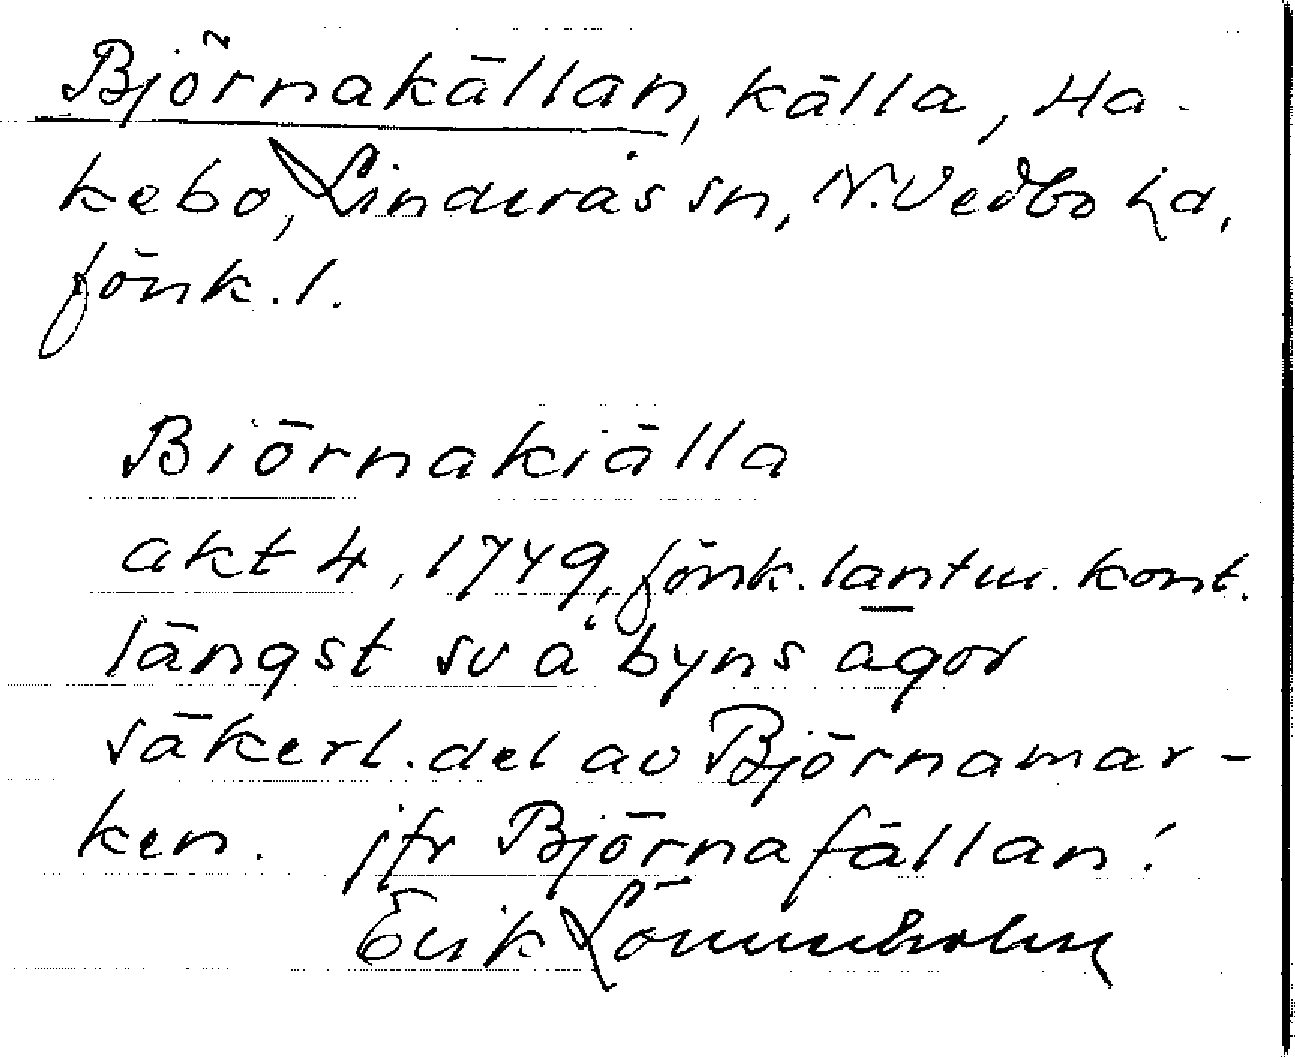 Björnakällan, källa, Ha-
kebo, Linderås sn, N. Vedbo hd,
Jönk. l.
Biörnakiälla
akt 4, 1749, Jönk. lantm. kont.
längst sv å byns ägor
säkerl. del av Björnamar-
ken. jfr Björnafällan!
Erik Lönnerholm